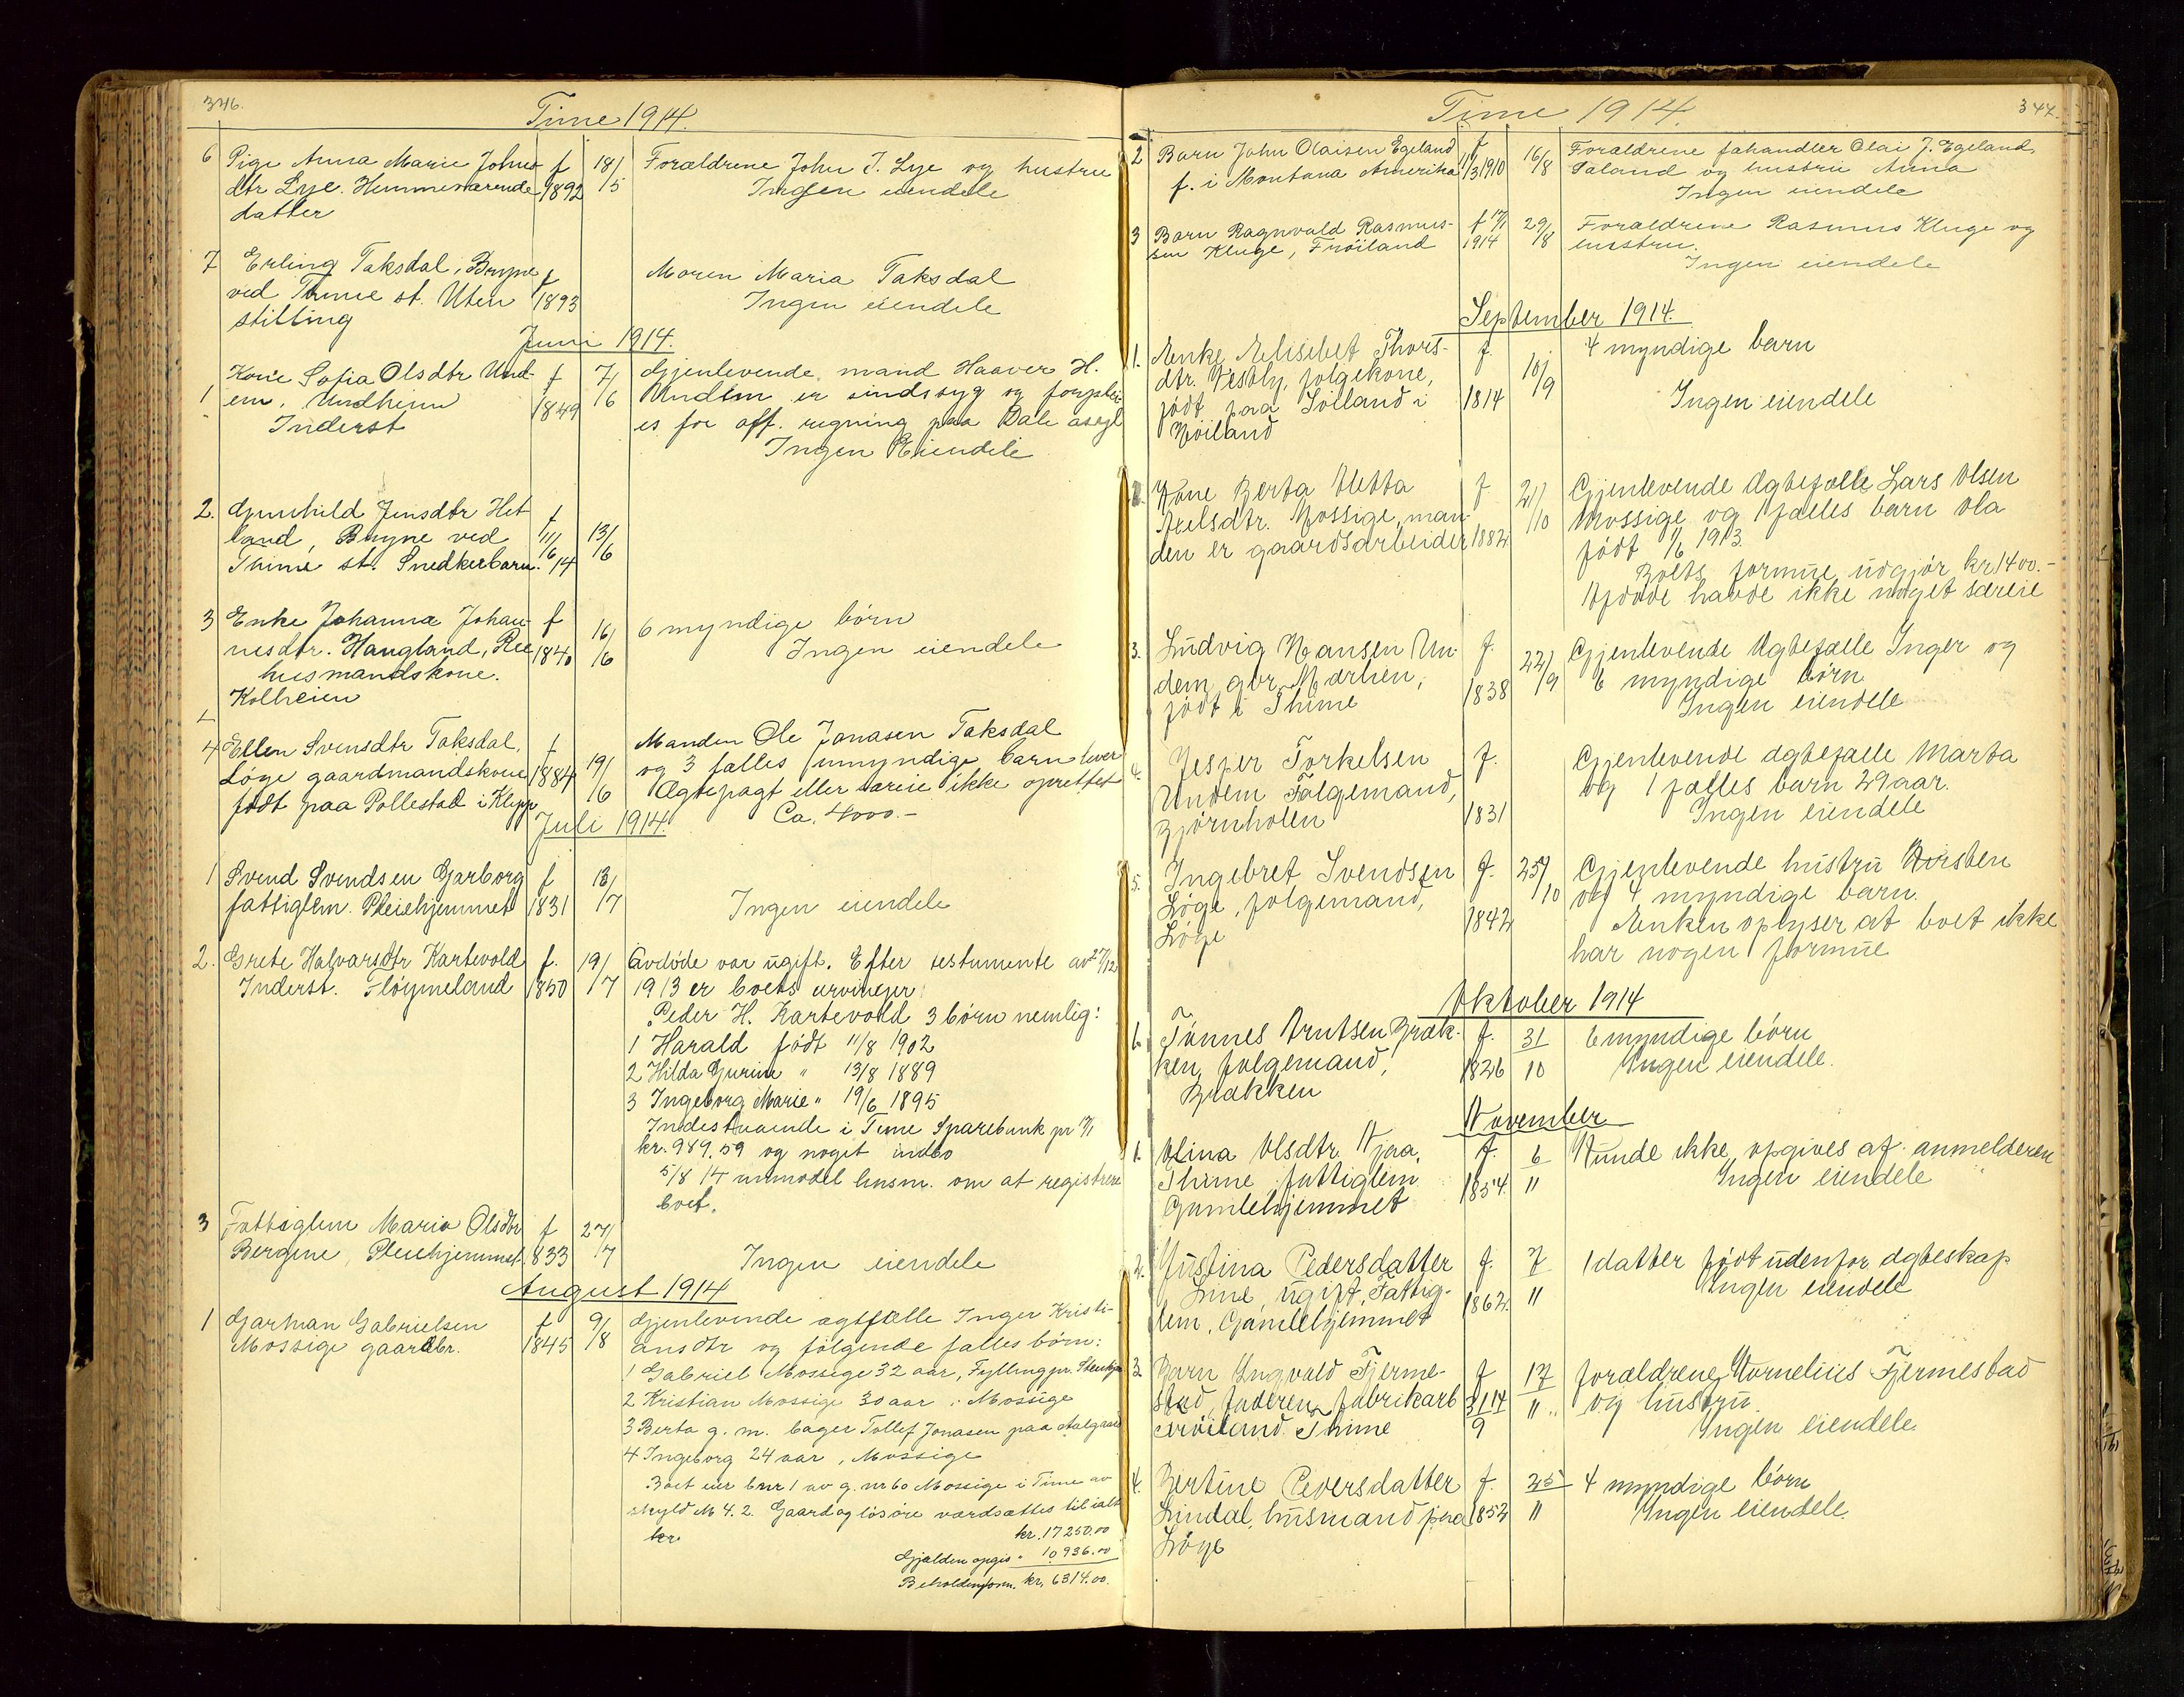 346.
Time 1914.
6 Pige Anna Marie Johns- f 18/5 Forældrene John J. Lye og hustru
dtr Lye. Hjemmeværende 1892 Ingen eiendele
datter
7 Erling Taksdal, Bryne f Moren Maria Taksdal
ved Thime st. Uten 1893 Ingen eiendele
stilling
Juni 1914.
1 Kone Sofia Olsdtr Und- f 7/6 Gjenlevende mand Haaver H.
em, Undheim 1849 Undem er sindssyg og forplei-
Inderst es for off. regning paa Dale asyl
Ingen Eiendele
2. Gunhild Jensdtr Het f 13/6
land, Bryne ved 11/6
Thime st. Snedkerbarn. 14
3 Enke Johanna Johan- f 16/6 6 myndige börn
nesdtr. Haugland, Ree 1840 Ingen eiendele
husmandskone.
Kolheien
4 Ellen Svensdtr Taksdal, f 19/6 Manden Ole Jonasen Taksdal
Løge gaardmandskone 1884 og 3 fælles umyndige barn lever
født paa Pollestad i Klepp Ægtepagt eller særeie ikke oprettet
Ca. 4000.-
Juli 1914.
1 Svend Svendsen Garborg f 13/7
fattiglem. Pleiehjemmet 1831 Ingen eiendele
2. Grete Halvarsdtr Kartevold f. 19/7 Avdöde var ugift. Efter testamente av 27/12
Inderst. Fløymeland 1850 1913 er boets arvinger:
Peder H. Kartevold 3 börn nemlig:
1 Harald född 11/8 1902
2 Hilda Gurine " 13/8 1889
3 Ingeborg Marie " 19/6 1895
Indestaaende i Time Sparebank pr 1/1
kr. 989.59 og noget indbo
5/8 14 anmodet lensm. om at registrere
boet.
3 Fattiglem Maria Olsdtr f 27/7
Bergene, Pleiehjemmet 1833 Ingen eiendele
August 1914
1 Garman Gabrielsen f 9/8 Gjenlevende ægtfælle Inger Kristi-
Mossige gaardbr. 1845 ansdtr og fölgende fælles börn:
1 Gabriel Mossige 32 aar, Fylling pr. Stenkjær
2 Kristian Mossige 30 aar, Mossige
3 Berta g. m. bager Tollef Jonasen paa Aalgaard
4 Ingeborg 24 aar, Mossige
Boet eier bnr 1 av g. nr 60 Mossige i Time av
skyld M 4.2. Gaard og løsøre værdsættes til ialt
kr. kr. 17250.00
Gjælden opgis " 10936.00
Beholden form. kr. 6314.00.
Time 1914.
347.
2 Barn John Olaisen Egeland f 16/8 Forældrene fæhandler Olai J. Egeland,
f. i Montana Amerika 11/3 1910 Taland og hustru Anna
Ingen eiendele
3 Barn Ragnvald Rasmus- f 17/1 29/8 Forældrene Rasmus Kluge og
sen Kluge, Frøiland 1914 hustru.
Ingen eiendele
September 1914.
1. Enke Elisebet Thors- f. 10/9 4 myndige barn
dtr. Vestly, folgekone,
født paa Søiland i 1814 Ingen eiendele
Høiland
2. Kone Berta Aletta f 21/10 Gjenlevende Ægtefælle Lars Olsen
Axelsdtr. Mossige, man- Mossige og 1 fælles barn Ola
den er gaardsarbeider 1882 født 1/6 1913.
Boets formue udgjør kr 1400.-
Afdøde havde ikke noget særeie
3. Ludvig Hansen Un- f. 22/9 Gjenlevende Ægtefælle Inger og
dem, gbr. Mælien, 1838 6 myndige børn
født i Thime Ingen eiendele
4. Jesper Torkelsen f. Gjenlevende ægtefælle Marta
Undem Følgemand, og 1 fælles barn 29 aar.
Bjørnholen 1831 Ingen eiendele
5. Ingebret Svendsen f. 25/10 Gjenlevende hustru Kirsten
Løge, folgemand, 1842 og 4 myndige barn.
Løge Enken oplyser at boet ikke
har nogen formue
Oktober 1914
1. Tønnes Arntsen Bræk- f. 31/10 6 myndige börn
ken, følgemand, 1826 Ingen eiendele.
Brækken
November
1. Olina Olsdtr. Njaa, f. 6/11 Kunde ikke opgives af anmelderen
Thime fattiglem 1854. Ingen eiendele
Gamlehjemmet
2. Justina Pedersdatter f. 7/11 1 datter født udenfor ægteskap
Line, ugift, Fattig- 1862 Ingen eiendele
lem, Gamlehjemmet
3 Barn Ingvald Fjerme- f 17/11 forældrene Kornelius Fjermestad
stad, faderen fabrikarb 3/9 14 og hustru.
Frøiland Thime Ingen eiendele.
4. Bertine Pedersdatter f. 25/11 4 myndige börn
Lindal, husmand paa 1852 Ingen eiendele.
Løge